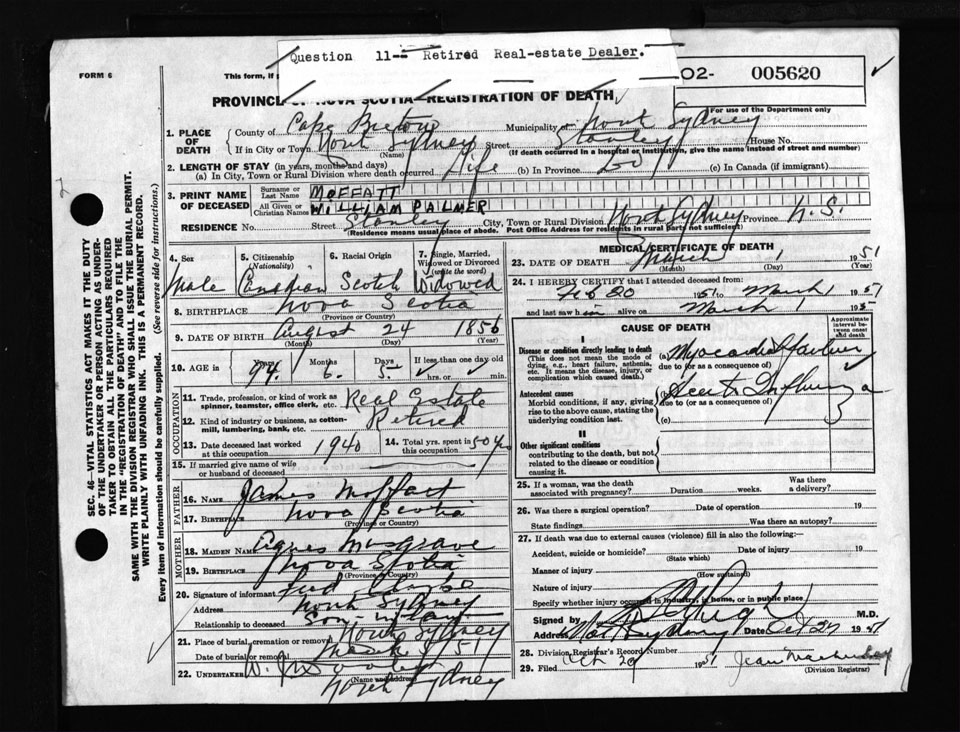 Question 11-- Retired Real-estate Dealer.
FORM 6
This form, if
O2- 005620
PROVINCE OF NOVA SCOTIA—REGISTRATION OF DEATH
For use of the Department only
1. PLACE OF DEATH
County of Cape Breton Municipality of North Sydney
If in City or Town North Sydney Street Stanley House No.
(Name) (If death occurred in a hospital or institution, give the name instead of street and number)
2. LENGTH OF STAY (in years, months and days)
(a) In City, Town or Rural Division where death occurred Life (b) In Province (c) In Canada (if immigrant)
3. PRINT NAME OF DECEASED
Surname or Last Name MOFFATT
All Given or Christian Names WILLIAM PALMER
RESIDENCE No. Street Stanley City, Town or Rural Division North Sydney Province N.S.
(Residence means usual place of abode. Post Office Address for residents in rural parts not sufficient)
4. Sex Male
5. Citizenship (Nationality) Canadian
6. Racial Origin Scotch
7. Single, Married, Widowed or Divorced (write the word) Widowed
8. BIRTHPLACE Nova Scotia
(Province or Country)
9. DATE OF BIRTH August 24 1856
(Month) (Day) (Year)
10. AGE in Years Months Days If less than one day old
94 6 5 hrs. or min.
OCCUPATION
11. Trade, profession, or kind of work as spinner, teamster, office clerk, etc. Real Estate
12. Kind of industry or business, as cotton-mill, lumbering, bank, etc. Retired
13. Date deceased last worked at this occupation 1940
14. Total yrs. spent in 50 yrs
15. If married give name of wife or husband of deceased
FATHER
16. NAME James Moffatt
17. BIRTHPLACE Nova Scotia
(Province or Country)
MOTHER
18. MAIDEN NAME Agnes Musgrave
19. BIRTHPLACE Nova Scotia
(Province or Country)
20. Signature of informant
Address North Sydney
Relationship to deceased Son-in-law
21. Place of burial, cremation or removal North Sydney
Date of burial or removal March 3/51
22. UNDERTAKER
(Name and address)
North Sydney
MEDICAL CERTIFICATE OF DEATH
23. DATE OF DEATH March 1 1951
(Month) (Day) (Year)
24. I HEREBY CERTIFY that I attended deceased from:
Feb 20 1951 to March 1 1951
and last saw him alive on March 1 195
CAUSE OF DEATH
Approximate interval between onset and death
I
Disease or condition directly leading to death
(This does not mean the mode of dying, e.g., heart failure, asthenia, etc. It means the disease, injury, or complication which caused death.)
(a) Myocardial failure
due to (or as a consequence of)
Antecedent causes
Morbid conditions, if any, giving rise to the above cause, stating the underlying condition last.
Acute Influenza
due to (or as a consequence of)
(c)
II
Other significant conditions
contributing to the death, but not related to the disease or condition causing it.
25. If a woman, was the death associated with pregnancy? Duration weeks. Was there a delivery?
26. Was there a surgical operation? Date of operation 19
State findings Was there an autopsy?
27. If death was due to external causes (violence) fill in also the following:—
Accident, suicide or homicide? Date of injury 19
(State which)
Manner of injury
(How sustained)
Nature of injury
Specify whether injury occurred in industry, in home, or in public place
Signed by M.D.
Address North Sydney Date Oct 27 1951
28. Division Registrar's Record Number
29. Filed Oct 29 1951 Jean
(Division Registrar)
SEC. 46—VITAL STATISTICS ACT MAKES IT THE DUTY
OF THE UNDERTAKER OR PERSON ACTING AS UNDER-
TAKER TO OBTAIN ALL THE PARTICULARS REQUIRED
IN THE "REGISTRATION OF DEATH" AND TO FILE THE
SAME WITH THE DIVISION REGISTRAR WHO SHALL ISSUE THE BURIAL PERMIT.
WRITE PLAINLY WITH UNFADING INK. THIS IS A PERMANENT RECORD.
Every item of information should be carefully supplied. (See reverse side for instructions.)